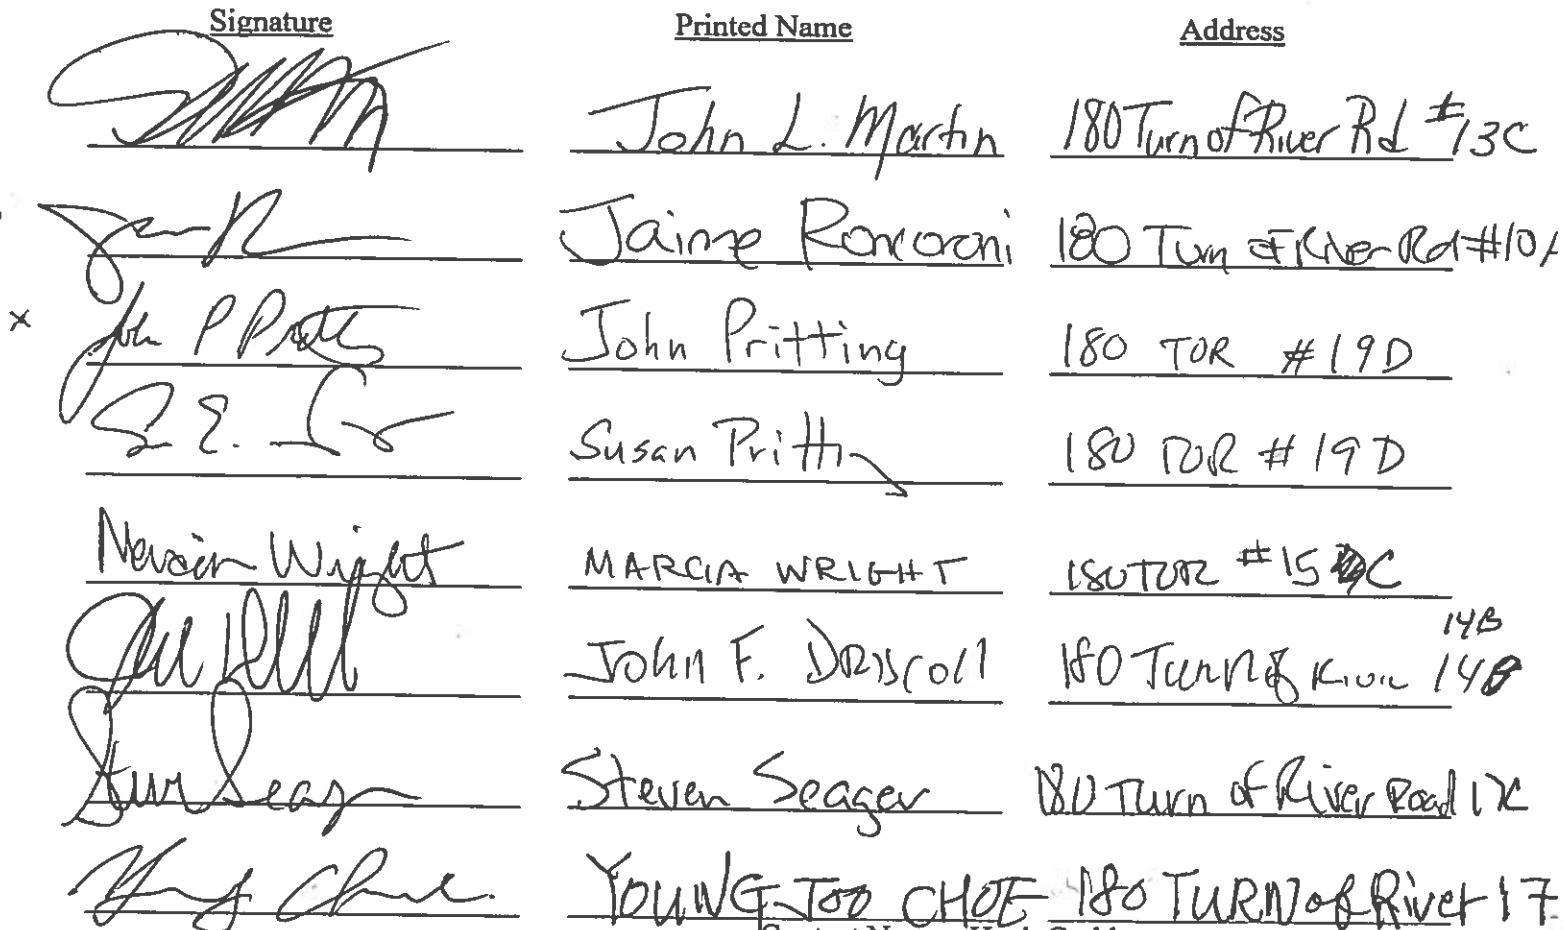 Signature Printed Name Address
John L. Martin 180 Turn of River Rd #13C
Jaime Roncoroni 180 Turn of River Rd #10A
x John P Pritting 180 TOR #19D
S. E. Susan Pritting 180 TOR #19D
Wright MARCIA WRIGHT 180 TOR #15 C
14B
John F. Driscoll 180 Turn of River 14B
Steven Seager Steven Seager 180 Turn of River Road
Young Choe YOUNG-JOO CHOE 180 TURN of River 17